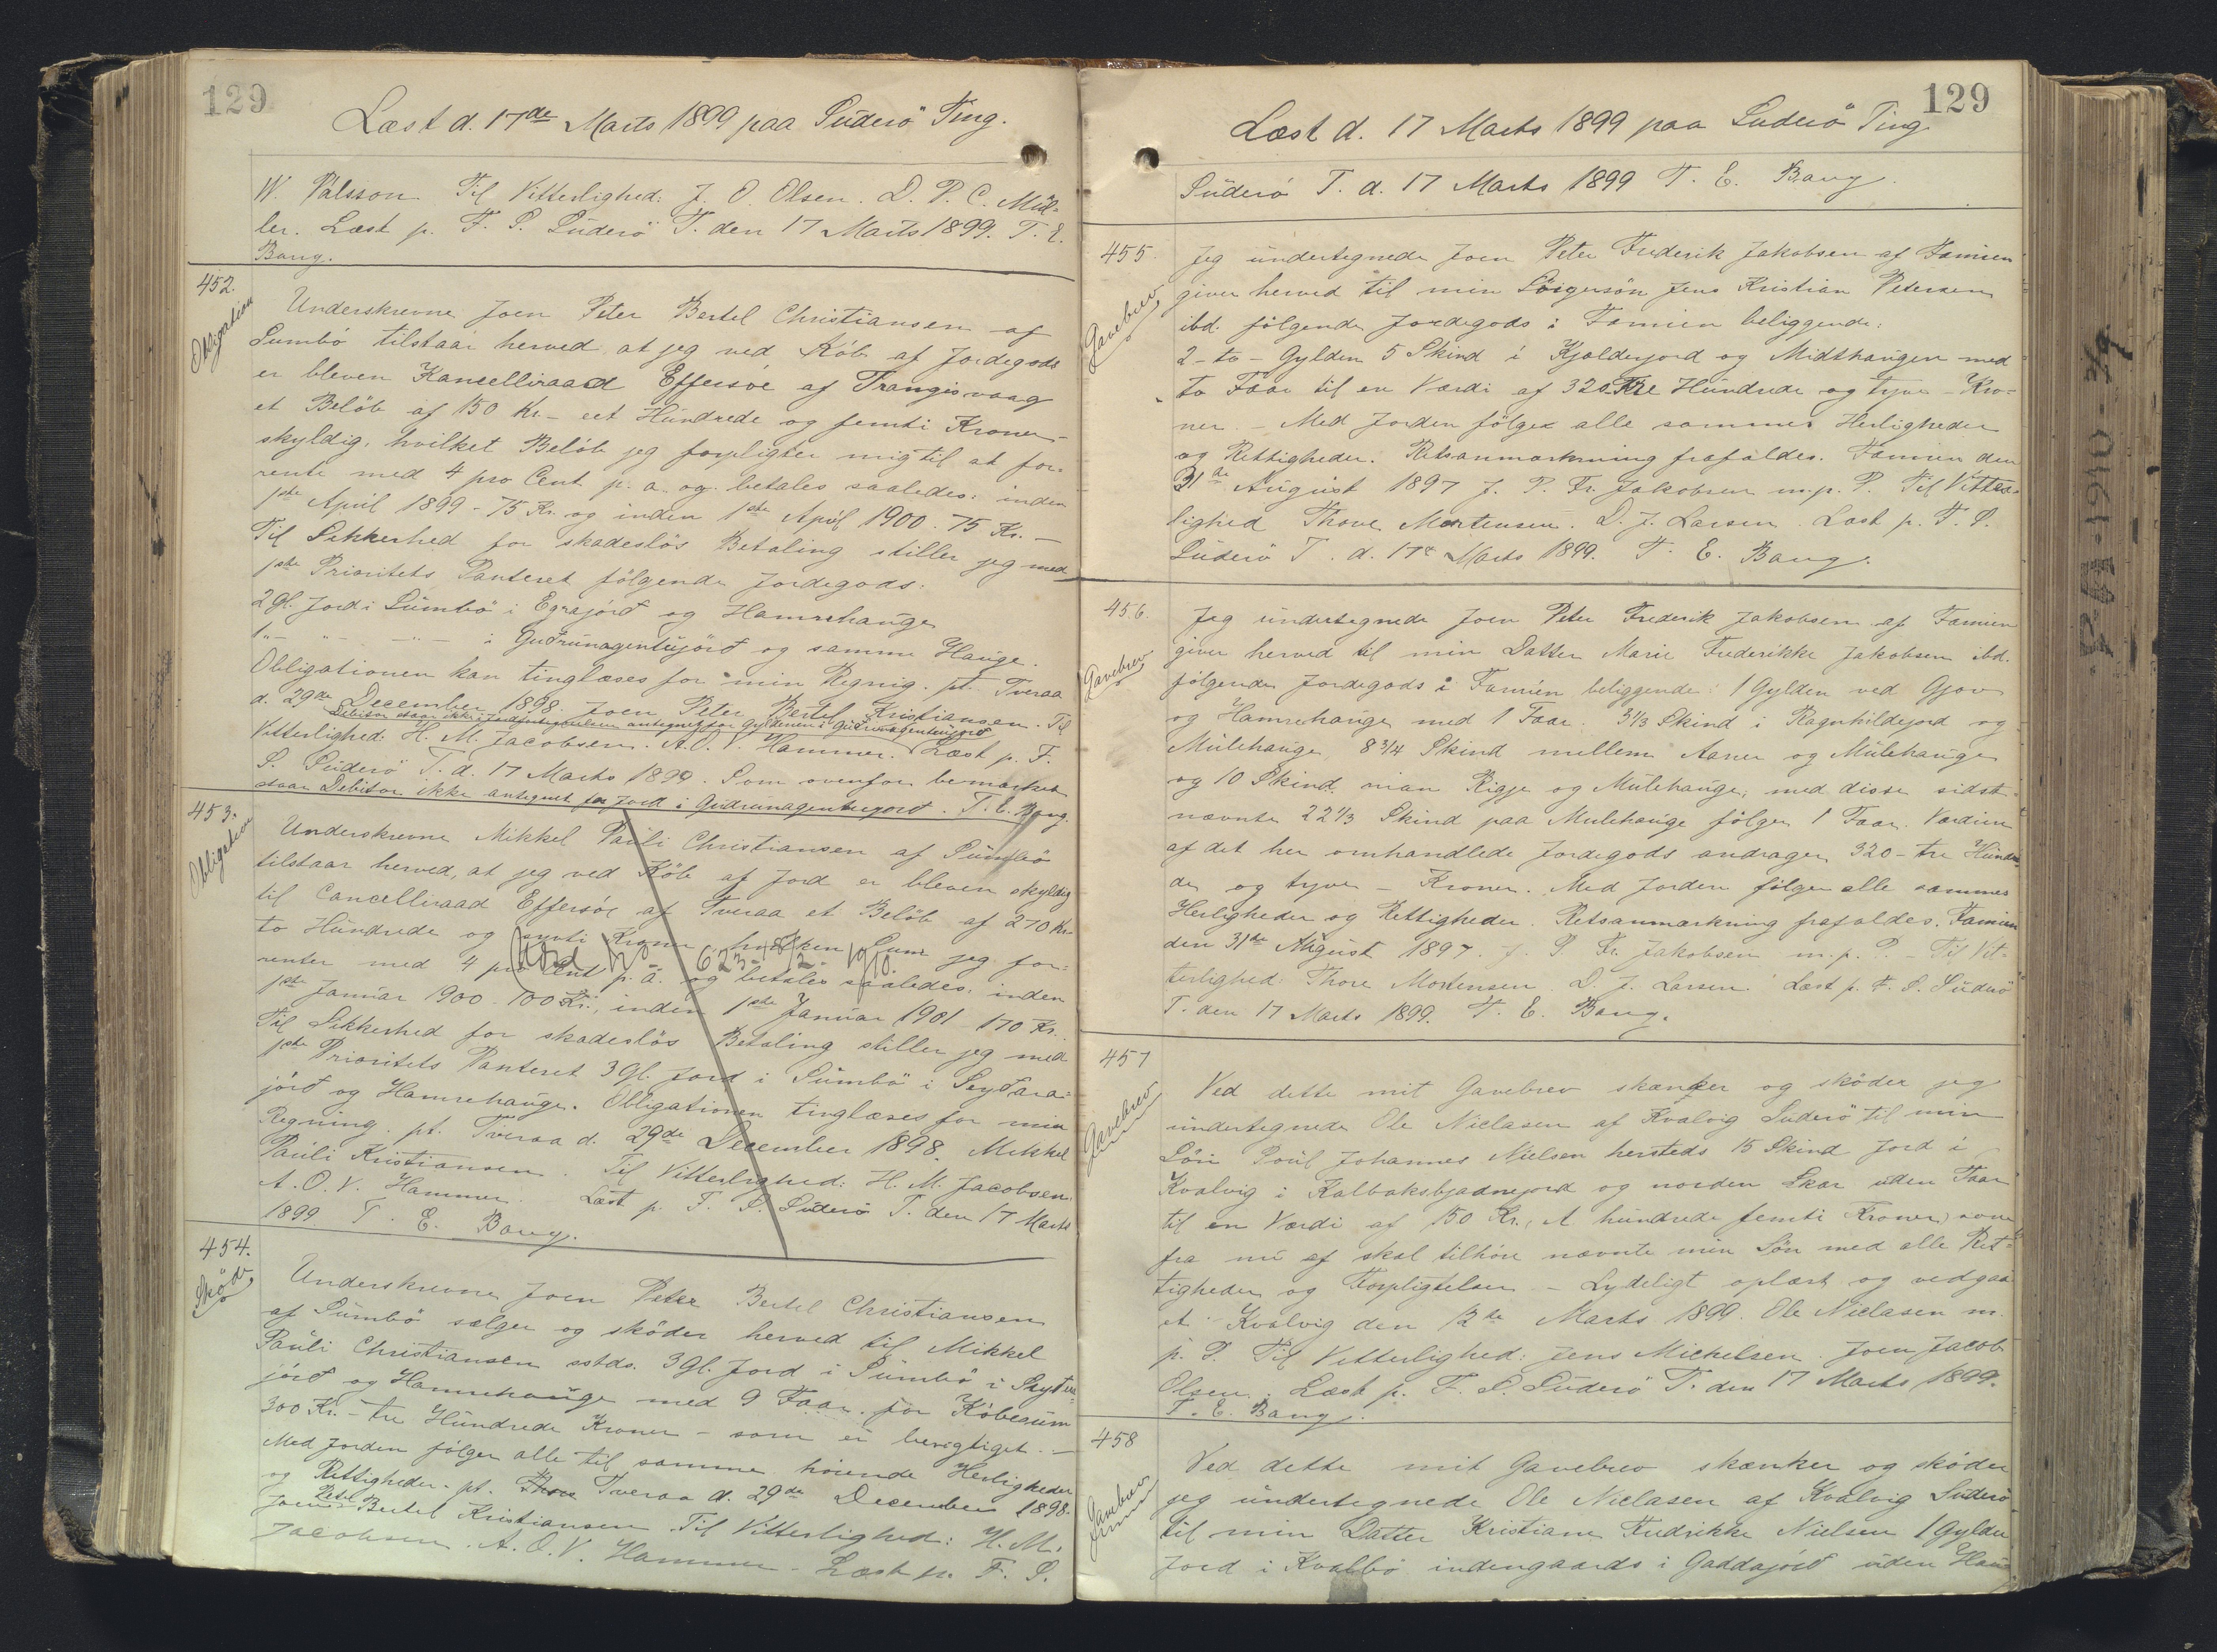 129
Læst d. 17de Marts 1899 paa Süderö Ting.
W. Pálsson Til Vitterlighed: J. O. Olsen. D. P. C. Mül-
ler. Læst p. F. S. Süderö T. den 17 Marts 1899. T. E.
Bang.
452.
Obligation
Underskrevne Joen Peter Bertel Christiansen af
Sumbö tilstaar herved at jeg ved Köb af Jordegods
er bleven Kancelliraad Effersöe af Trangisvaag
et Belöb af 150 Kr - eet Hündrede og femti Kroner -
skyldig, hvilket Belöb jeg forpligter mig til at for-
rente med 4 pro Cent p. a. og betales saaledes: inden
1ste April 1899 - 75 Kr. og inden 1ste April 1900. 75 Kr. -
Til Sikkerhed for skadeslös Betaling stiller jeg med
1ste Prioritets Panteret fölgende Jordegods.
2 Gl. Jord i Sümbö i Egrajörd og Hamrehauge
1 " - " - " - i Guðrünagentujörð og samme Hauge.
Obligationen kan tinglæses for min Regnig. pt. Tveraa
d. 29de December 1898. Joen Peter Bertel Kristiansen. Til
Debitor staar ikke i Jordfortegnelsen antegnet for Gyldenen i Guðrünagentujörð
Vitterlighed: H. M. Jacobsen. A. O. V. Hammer. Læst p. F.
S. Süderö T. d. 17 Marts 1899. Som ovenfor bemærket
staar Debitor ikke antegnet for Jord i Gudrunagentujord. T. E. Bang.
453.
Obligation
Underskrevne Mikkel Paüli Christiansen af Sümbö
tilstaar herved, at jeg ved Köb af Jord er bleven skyldig
til Cancelliraad Effersöe af Tveraa et Belöb af 270 Kr.
to Hündrede og syvti Kroner, hvilken Sum jeg for-
renter med 4 pro Cent p. a. og betales saaledes: inden
No 623 - 18/2 - 1910.
1ste Januar 1900 - 100 Kr., inden 1ste Januar 1901 170 Kr.
Til Sikkerhed for skadeslös Betaling stiller jeg med
1ste Prioritets Panteret 3 Gl. Jord i Sümbö i Seyðara-
jörð og Hamrehauge. Obligationen tinglæses for min
Regning. pt. Tveraa d. 29de December 1898. Mikkel
Paüli Kristiansen. Til Vitterlighed: H. M. Jacobsen.
A. O. V. Hammer. Læst p. F. S. Süderö T. den 17 Marts
1899 T. E. Bang.
454.
Sköde
Underskrevne Joen Peter Bertel Christiansen
af Sümbö sælger og sköder herved til Mikkel
Paüli Christiansen sstds. 3 Gl. Jord i Sümbö i Seyðara-
jörð og Hamrehauge med 9 Faar. for Köbesum
300 Kr. - tre Hündrede Kroner - som er berigtiget. -
Med Jorden fölger alle til samme hörende Herligheder
og Rettigheder. pt. Tveraa d. 29de December 1898.
Joen Peter Bertel Kristiansen Til Vitterlighed: H. M.
Jacobsen. A. O. V. Hammer. Læst p. F. S.
129
Læst d. 17 Marts 1899 paa Suderö Ting
Süderö T. d. 17 Marts 1899 T. E. Bang.
455.
Gavebrev
Jeg ündertegnede Joen Peter Frederik Jakobsen af Famien
giver herved til min Svigersön Jens Kristian Petersen
ibd. fölgende Jordegods i Famien beliggende:
2 - to - Gylden 5 Skind i Kjalderjord og Midthaugen med
to Faar til en Værdi af 320 Tre Hündrede og tyve - Kro-
ner. - Med Jorden fölger alle sammes Herligheder
og Rettigheder. Retsanmærkning frafaldes. Famien den
31de August 1897 J. P. Fr. Jakobsen m. p. P. Til Vitter-
lighed Thove Mortensen. D. J. Larsen. Læst p. F. S.
Süderö T. d. 17de Marts 1899. T. E. Bang.
456.
Gavebrev
Jeg ündertegnede Joen Peter Frederik Jakobsen af Famien
giver herved til min Datter Marie Frederikke Jakobsen ibd.
fölgende Jordegods i Famien beliggende: 1 Gylden ved Gjov
og Hamrehauge med 1 Faar. 3 1/3 Skind i Ragnhildejord og
Mülehauge, 8 3/4 Skind mellem Aaner og Mülehauge
og 10 Skind Rigje og Mülehauge; med disse sidst-
nævnte 22 1/3 Skind paa Mulehauge fölger 1 Faar. Værdien
af det her omhandlede Jordegods andrager 320 - tre Hünd-
de og tyve - Kroner. Med Jorden fölger alle sammes
Herligheder og Rettigheder. Retsanmærkning frafaldes. Famien
den 31de August 1897. J. P. Fr. Jakobsen m. p. P. - Til Vit-
terlighed: Thove Mortensen D. J. Larsen. Læst p. F. S. Süderö
T. den 17 Marts 1899. T. E. Bang.
457
Gavebrev
Ved dette mit Gavebrev skænker og sköder jeg
ündertegnede Ole Niclasen af Kvalvig Suderö til min
Sön Poül Johannes Nielsen hersteds 15 Skind Jord i
Kvalvig i Kalbaksbjadnejord og norden Skar uden Faar
til en Værdi af 150 Kr., et hündrede femti Kroner, som
fra nü af skal tilhöre nævnte min Sön med alle Ret-
tigheder og Forpligtelser. - Lydeligt oplæst og vedgaa-
et. Kvalvig den 12te Marts 1899. Ole Niclasen m.
p. P. Til Vitterlighed: Jens Michelsen. Joen Jacob
Olsen. Læst p. F. S. Süderö T. den 17 Marts 1899.
T. E. Bang.
458
Gavebrev
Ved dette mit Gavebrev skænker og sköder
jeg ündertegnede Ole Niclasen af Kvalvig Suderö
til min Datter Kristiane Fredrikke Nielsen 1 Gylden
Jord i Kvalbö indengaards i Gaddajörð uden Haug